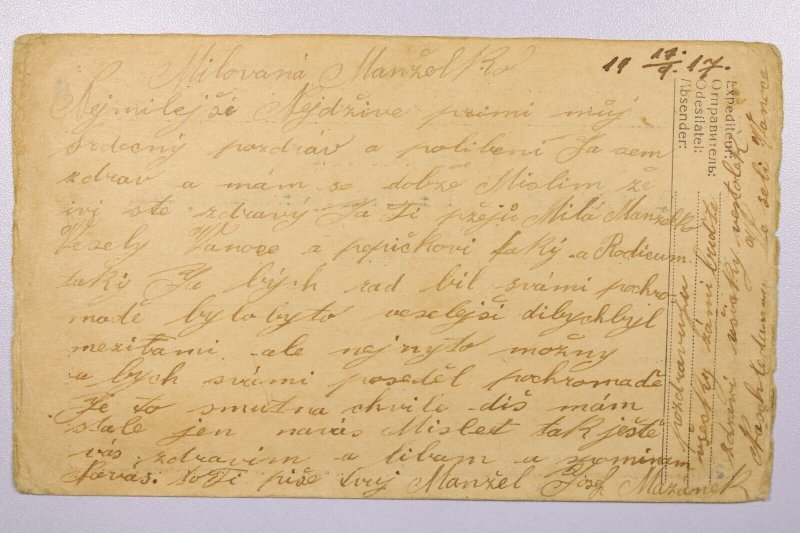 19 17./9. 17.
Milovaná Manželko
Nejmilejší Nejdžive přimi můj
srdečný pozdráv a polibení Ja sem
zdrav a mám se dobže Mislim že
ivi ste zdravý Ja Ti přejů Milá Manželko
Vesely Vanoce a pepičkovi taký a Rodicum
taki Ja bých rad bil svámi pochro
madě bylo byto veselejši dibychbyl
mezitami ale nejnyto možny
a bych svámi poseděl pochromadě
Je to smutna chvile diš mám
stale jen navás Mislet tak ještě
vás zdravim a libam a
Navás. toTi piše tvuj Manžel Josef Mazánek
Expediteur:
Отправитель:
Odesílatel:
Absender:
pozdravuju
všechny
zdravi
Vanoce